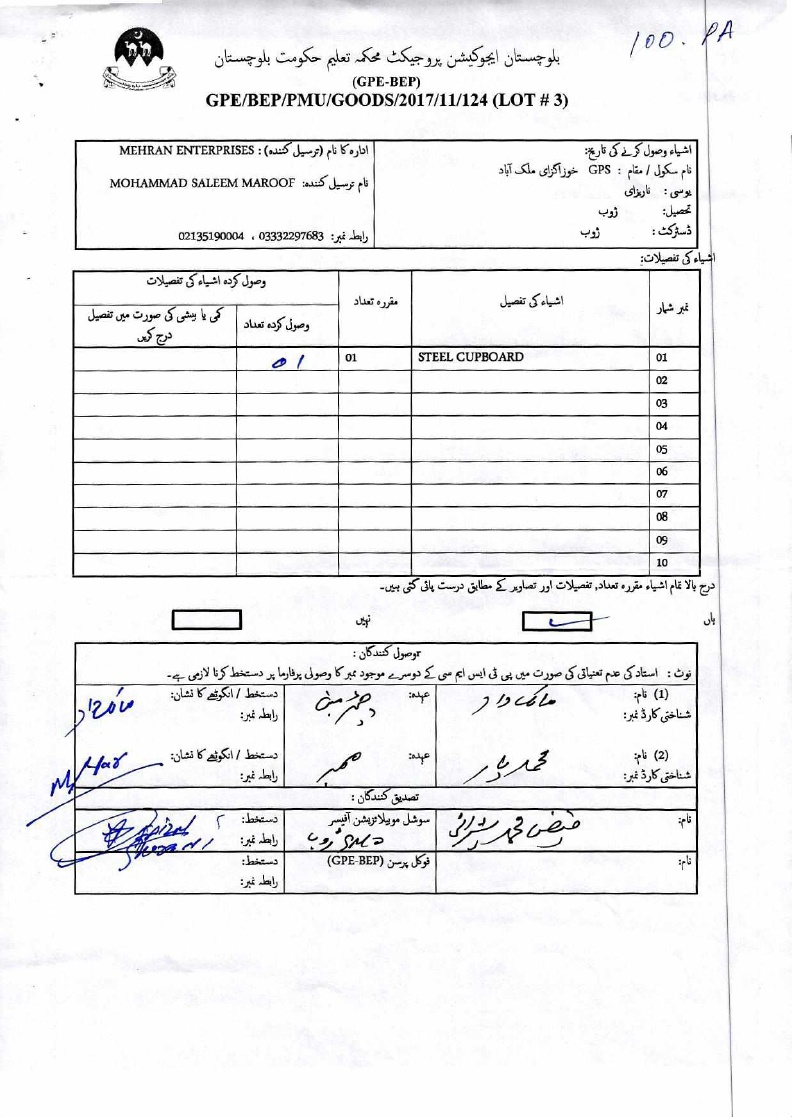 100. PA
بلوچستان ایجوکیشن پروجیکٹ محکمہ تعلیم حکومت بلوچستان
(GPE-BEP)
GPE/BEP/PMU/GOODS/2017/11/124 (LOT # 3)
اشیاء وصول کرنے کی تاریخ:
نام سکول / مقام : GPS خوزاگزای ملک آباد
یوسی : ناریزای
تحصیل: ژوب
ڈسٹرکٹ : ژوب
ادارہ کا نام (ترسیل کنندہ) : MEHRAN ENTERPRISES
نام ترسیل کنندہ: MOHAMMAD SALEEM MAROOF
رابطہ نمبر: 03332297683 ، 02135190004
اشیاء کی تفصیلات:
نمبر شمار اشیاء کی تفصیل مقررہ تعداد وصول کردہ اشیاء کی تفصیلات
وصول کردہ تعداد کمی یا بیشی کی صورت میں تفصیل درج کریں
01 STEEL CUPBOARD 01 01
02
03
04
05
06
07
08
09
10
درج بالا تمام اشیاء مقررہ تعداد, تفصیلات اور تصاویر کے مطابق درست پائی گئی ہیں۔
ہاں نہیں
وصول کنندگان :
نوٹ : استاد کی عدم تعیناتی کی صورت میں پی ٹی ایس ایم سی کے دوسرے موجود ممبر کا وصولی پرفارما پر دستخط کرنا لازمی ہے۔
(1) نام: عہدہ: چئرمین دستخط / انگوٹھے کا نشان:
شناختی کارڈ نمبر: رابطہ نمبر:
(2) نام: محمد عہدہ: ممبر دستخط / انگوٹھے کا نشان:
شناختی کارڈ نمبر: رابطہ نمبر:
تصدیق کنندگان :
نام: فیض محمد شیرانی سوشل موبیلائزیشن آفیسر دستخط:
ژوب رابطہ نمبر:
نام: فوکل پرسن (GPE-BEP) دستخط:
رابطہ نمبر: